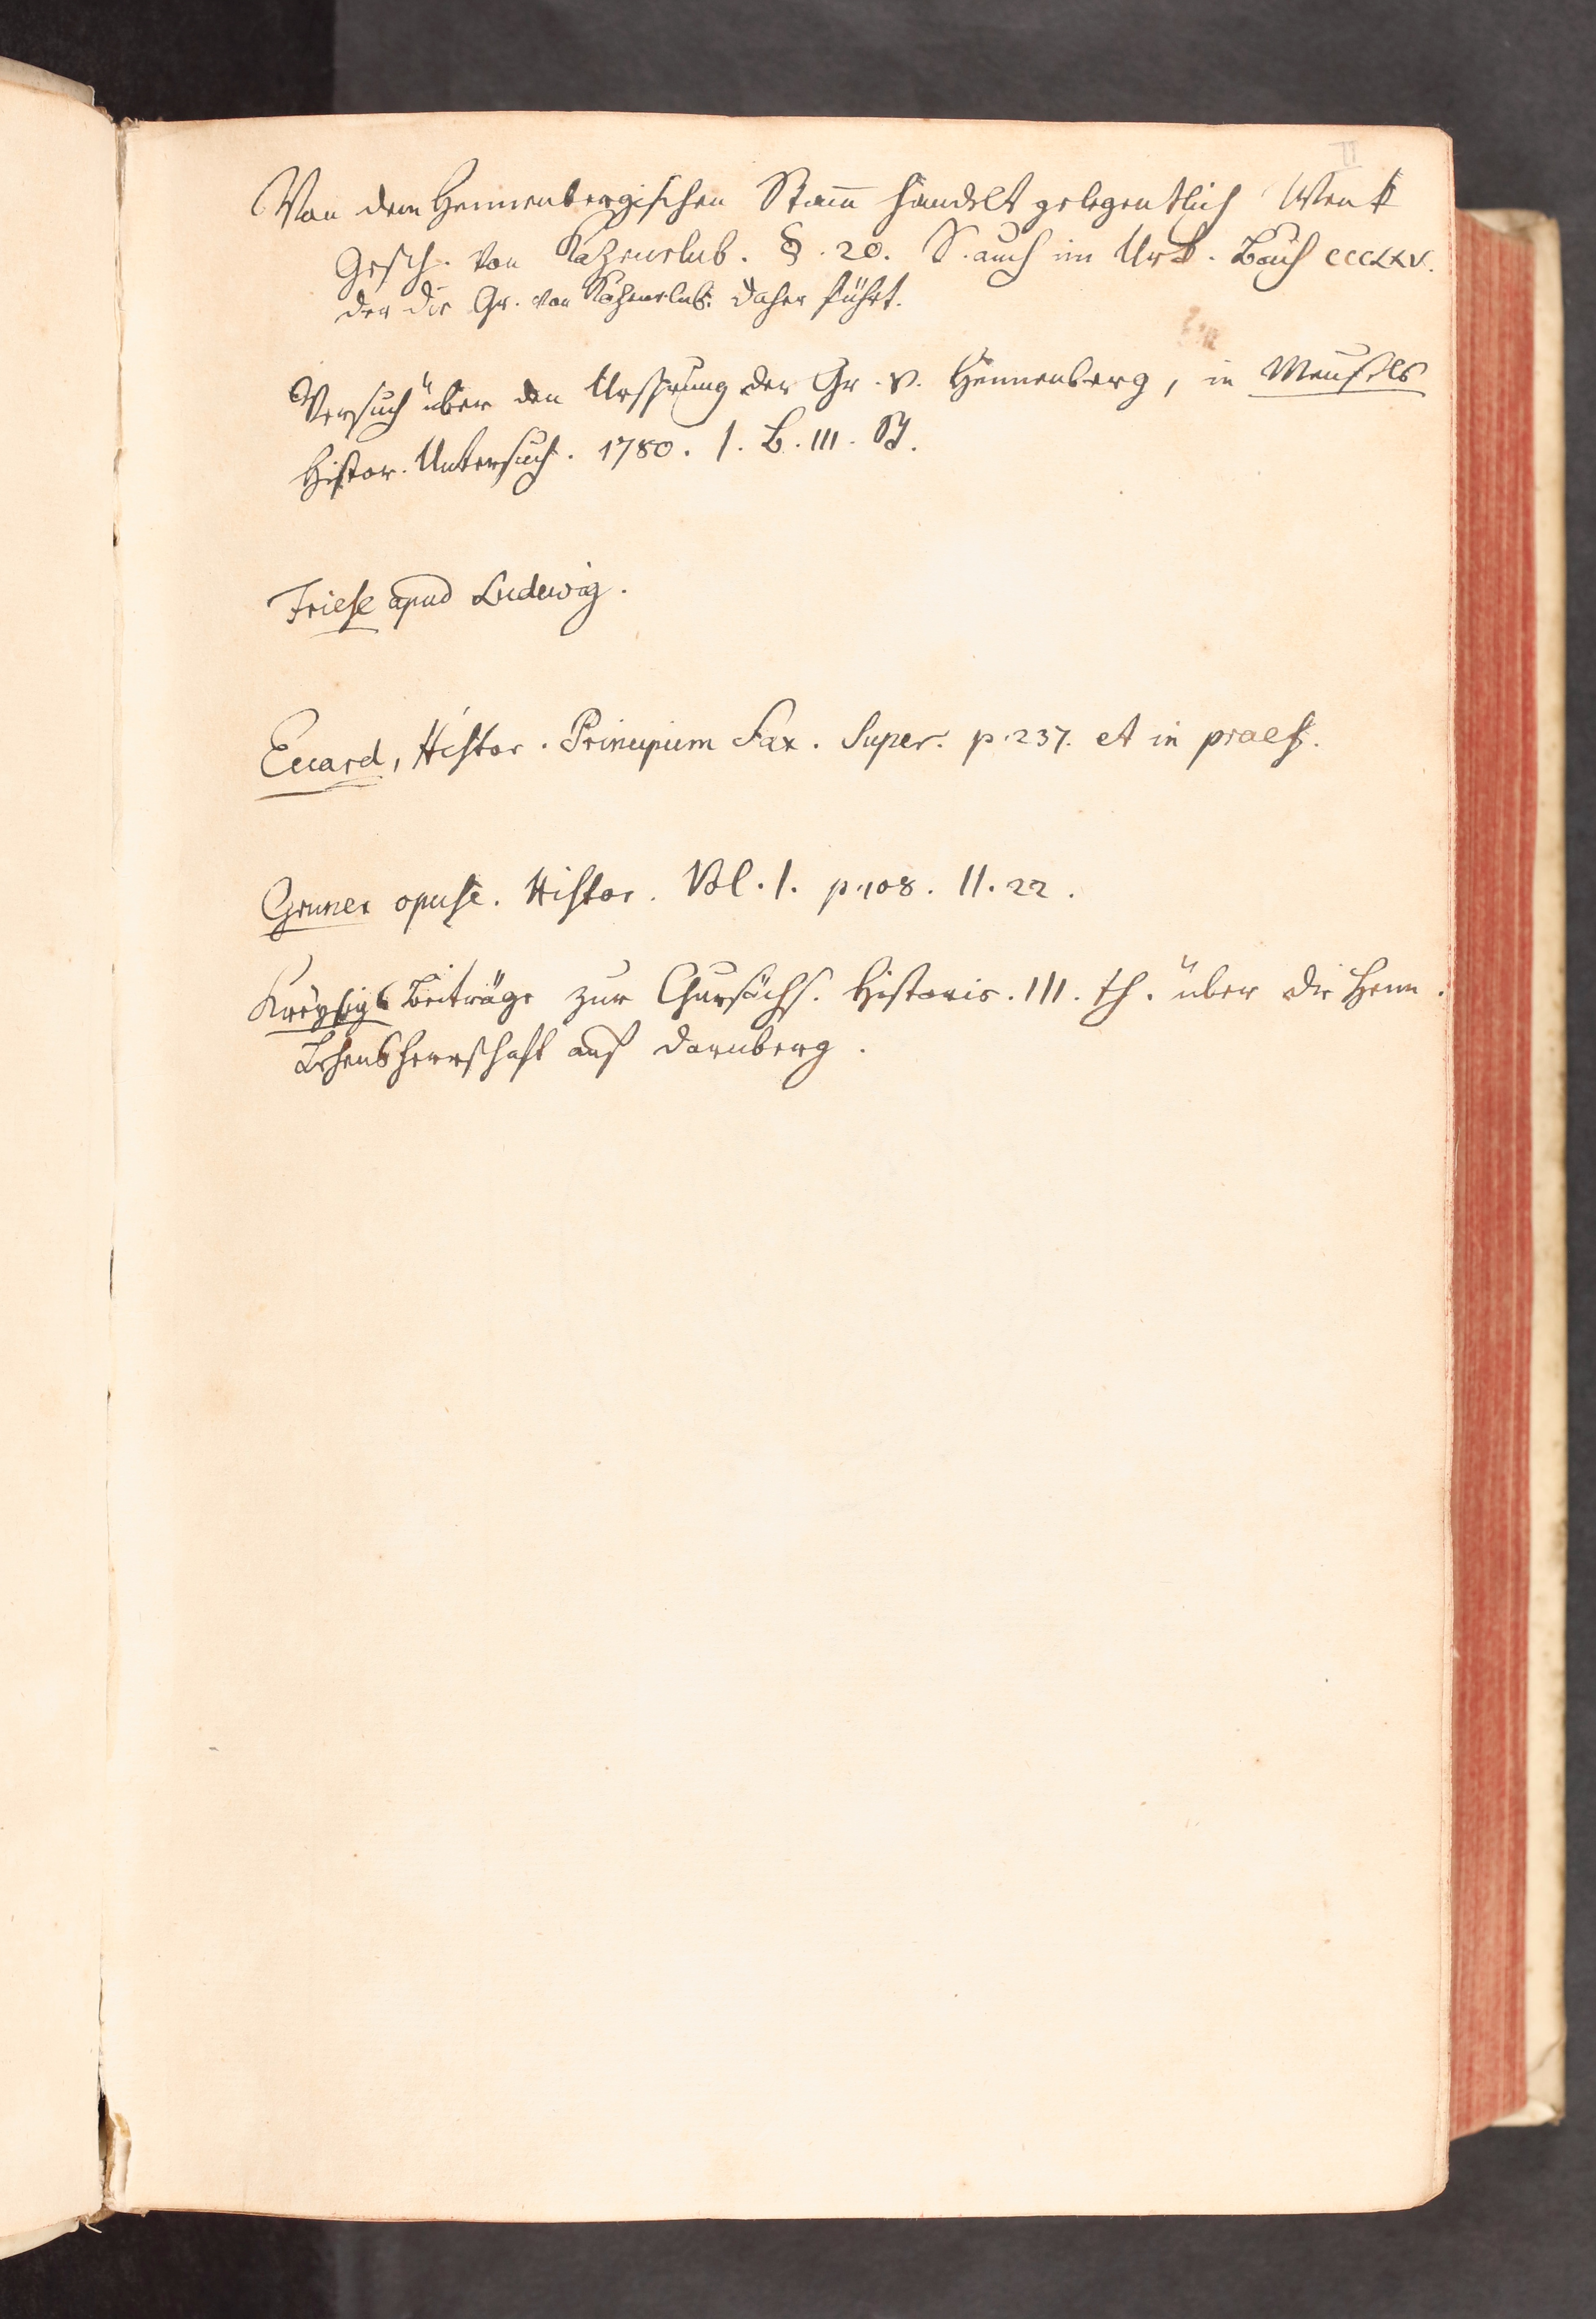 II
Von dem Hennenbergischen Stam̅ handelt gelegentlich Wenk
Gesch. von Kazenelnb. §. 20. S. auch im Urk. Buch CCCLXV.
der die Gr. von Kazenelnb. daher führt.
Versuch über den Ursprung der Gr. v. Hennenberg, in Meusels
Histor. Untersuch. 1780. 1. B. III. St.
Friese apud Ludewig.
Eccard, Histor. Principum Sax. Super. p. 237. et in praef.
Gruner opusc. Histor. Vol. I. p. 108. II. 22.
Kreysigs Beiträge zur Chursächs. Historie. III. th. über die Henn.
Lehensherrschaft auf Dornberg.